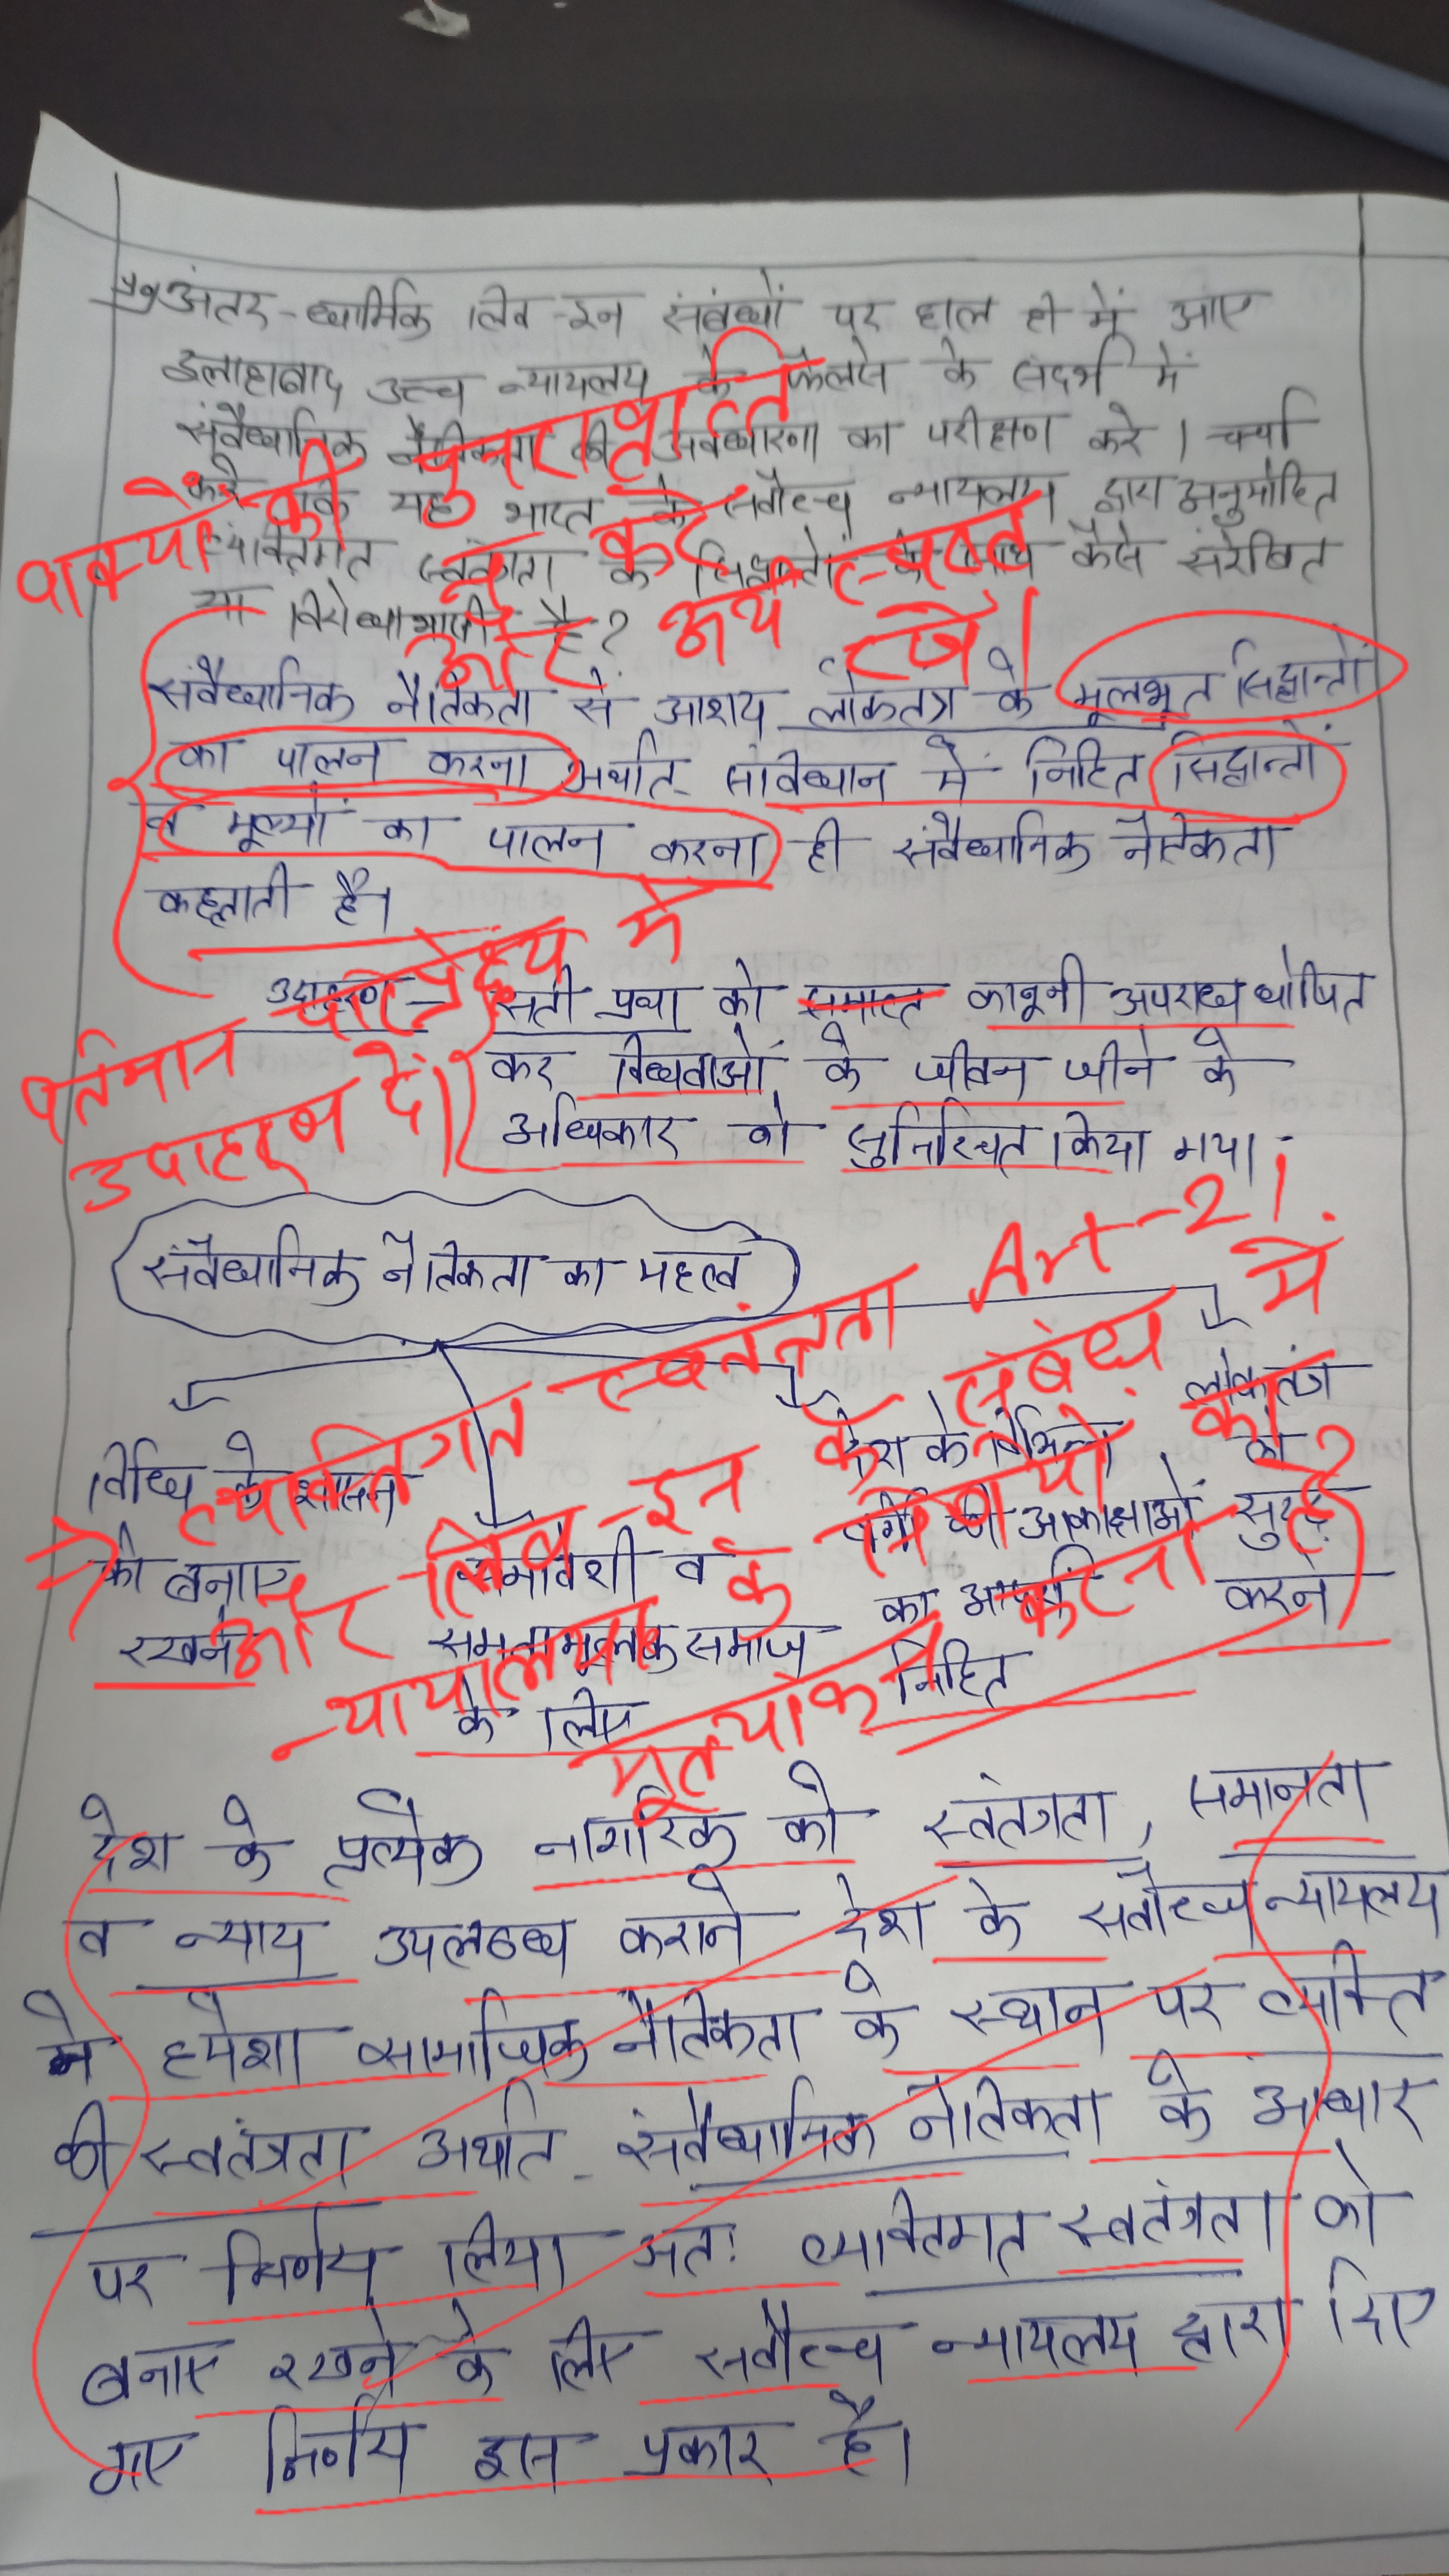 प्र०अंतर-धार्मिक लिव-इन संबंधों पर हाल ही में आए
इलाहाबाद उच्च न्यायलय के फैसले के संदर्भ में
संवैधानिक नैतिकता की अवधारणा का परीक्षण करे । चर्चा
करे कि यह भारत के सर्वोच्च न्यायलय द्वारा अनुमोदित
व्यक्तिगत स्वतंत्रता के सिद्धान्तो के साथ कैसे संरेखित
या विरोधाभासी है?
वाक्यो की पुनरावृत्ति
न करे
और अर्थ स्पष्ट
रखे।
संवैधानिक नैतिकता से आशय लोकतंत्र के मूलभूत सिद्धान्तों
का पालन करना अर्थात- संविधान में निहित सिद्धान्तों
व मूल्यों का पालन करना ही संवैधानिक नैतिकता
कहलाती है।
वर्तमान परिप्रेक्ष्य में
उदाहरण दें।
उदाहरण- सती प्रथा को समाप्त कानूनी अपराध घोषित
कर विधवाओं के जीवन जीने के
अधिकार को सुनिश्चित किया गया।
संवैधानिक नैतिकता का महत्व
विधि के शासन
को बनाए
रखने
समावेशी व
समतामूलक समाज
के लिए
देश के विभिन्न
वर्गो की आकांक्षाओं
का आदर्श
निहित
लोकतंत्र
को
सुदृढ़
करने
व्यक्तिगत स्वतंत्रता Art-21
और लिव-इन के संबंध में
न्यायालय के निर्णयो का
मूल्यांकन करना है?
देश के प्रत्येक नागरिक को स्वतंत्रता, समानता
व न्याय उपलब्ध कराने देश के सर्वोच्च न्यायलय
ने हमेशा सामाजिक नैतिकता के स्थान पर व्यक्ति
की स्वतंत्रता अर्थात- संवैधानिक नैतिकता के आधार
पर निर्णय लिया अतः व्यक्तिगत स्वतंत्रता को
बनाए रखने के लिए सर्वोच्च न्यायलय द्वारा दिए
गए निर्णय इस प्रकार है।